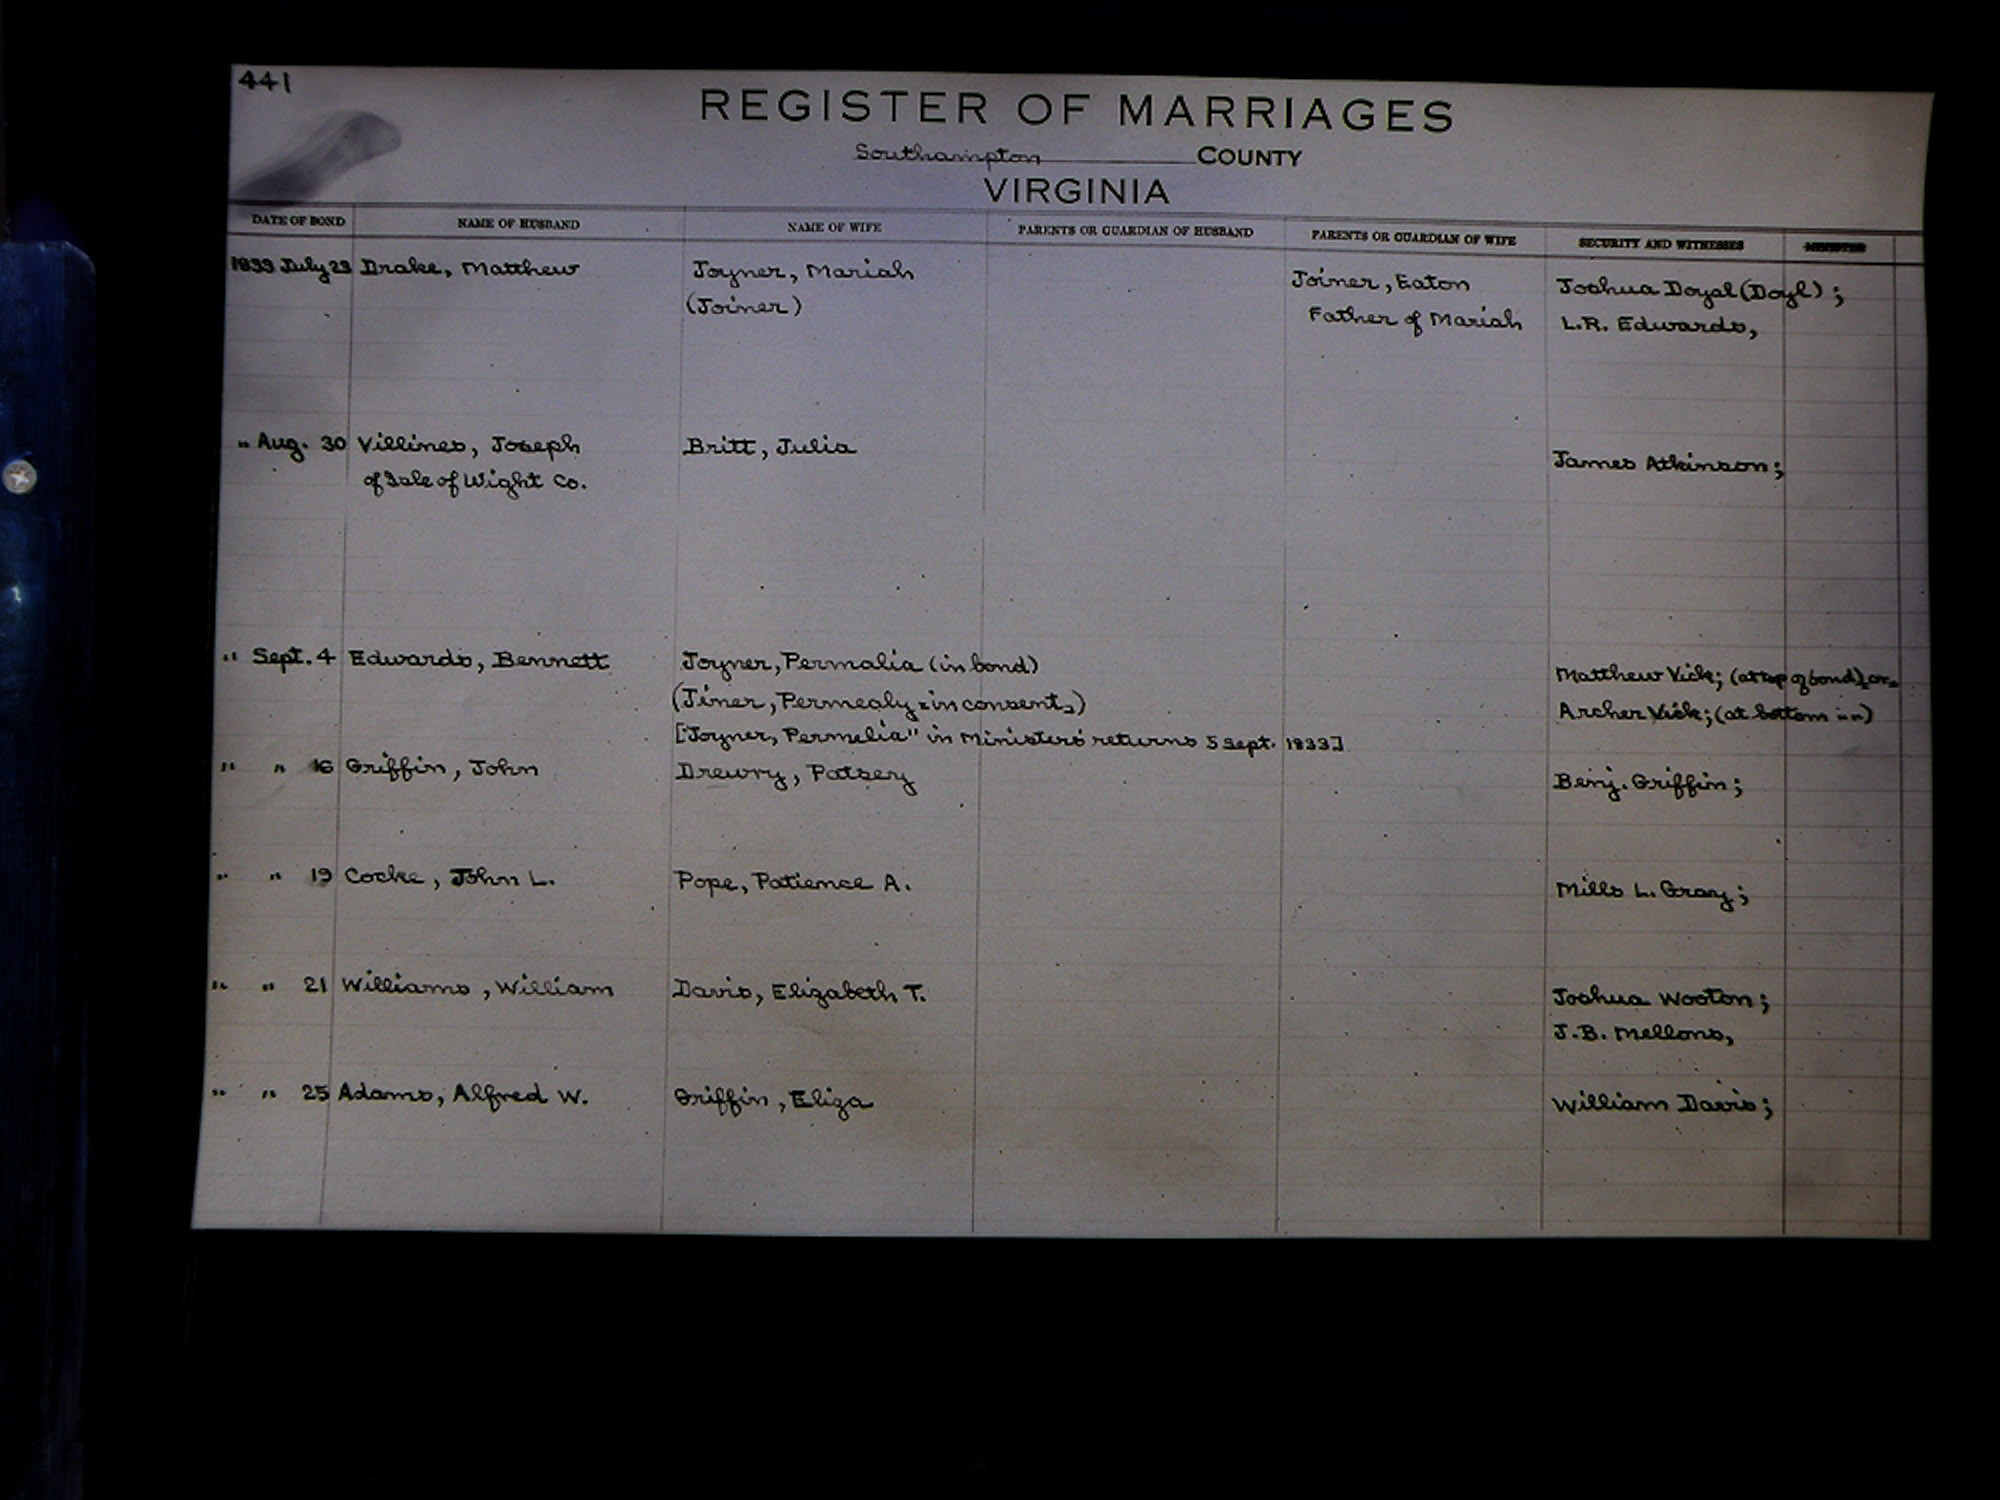 441
REGISTER OF MARRIAGES
Southampton COUNTY
VIRGINIA
DATE OF BOND NAME OF HUSBAND NAME OF WIFE PARENTS OR GUARDIAN OF HUSBAND PARENTS OR GUARDIAN OF WIFE SECURITY AND WITNESSES MINISTER
1833 July 23 Drake, Matthew Joyner, Mariah Joiner, Eaton Joshua Doyal (Doyl);
(Joiner) Father of Mariah L.R. Edwards,
" Aug. 30 Villines, Joseph Britt, Julia James Atkinson;
of Isle of Wight Co.
" Sept. 4 Edwards, Bennett Joyner, Permalia (in bond) Matthew Vick; (at top of bond), or
(Jiner, Permealy = in consent.) Archer Vick; (at bottom " ")
["Joyner, Permelia" in Ministers' returns 5 Sept. 1833]
" " 16 Griffin, John Drewry, Patsey Benj. Griffin;
" " 19 Cocke, John L. Pope, Patience A. Mills L. Gray;
" " 21 Williams, William Davis, Elizabeth T. Joshua Wooton;
J.B. Mellons,
" " 25 Adams, Alfred W. Griffin, Eliza William Davis;